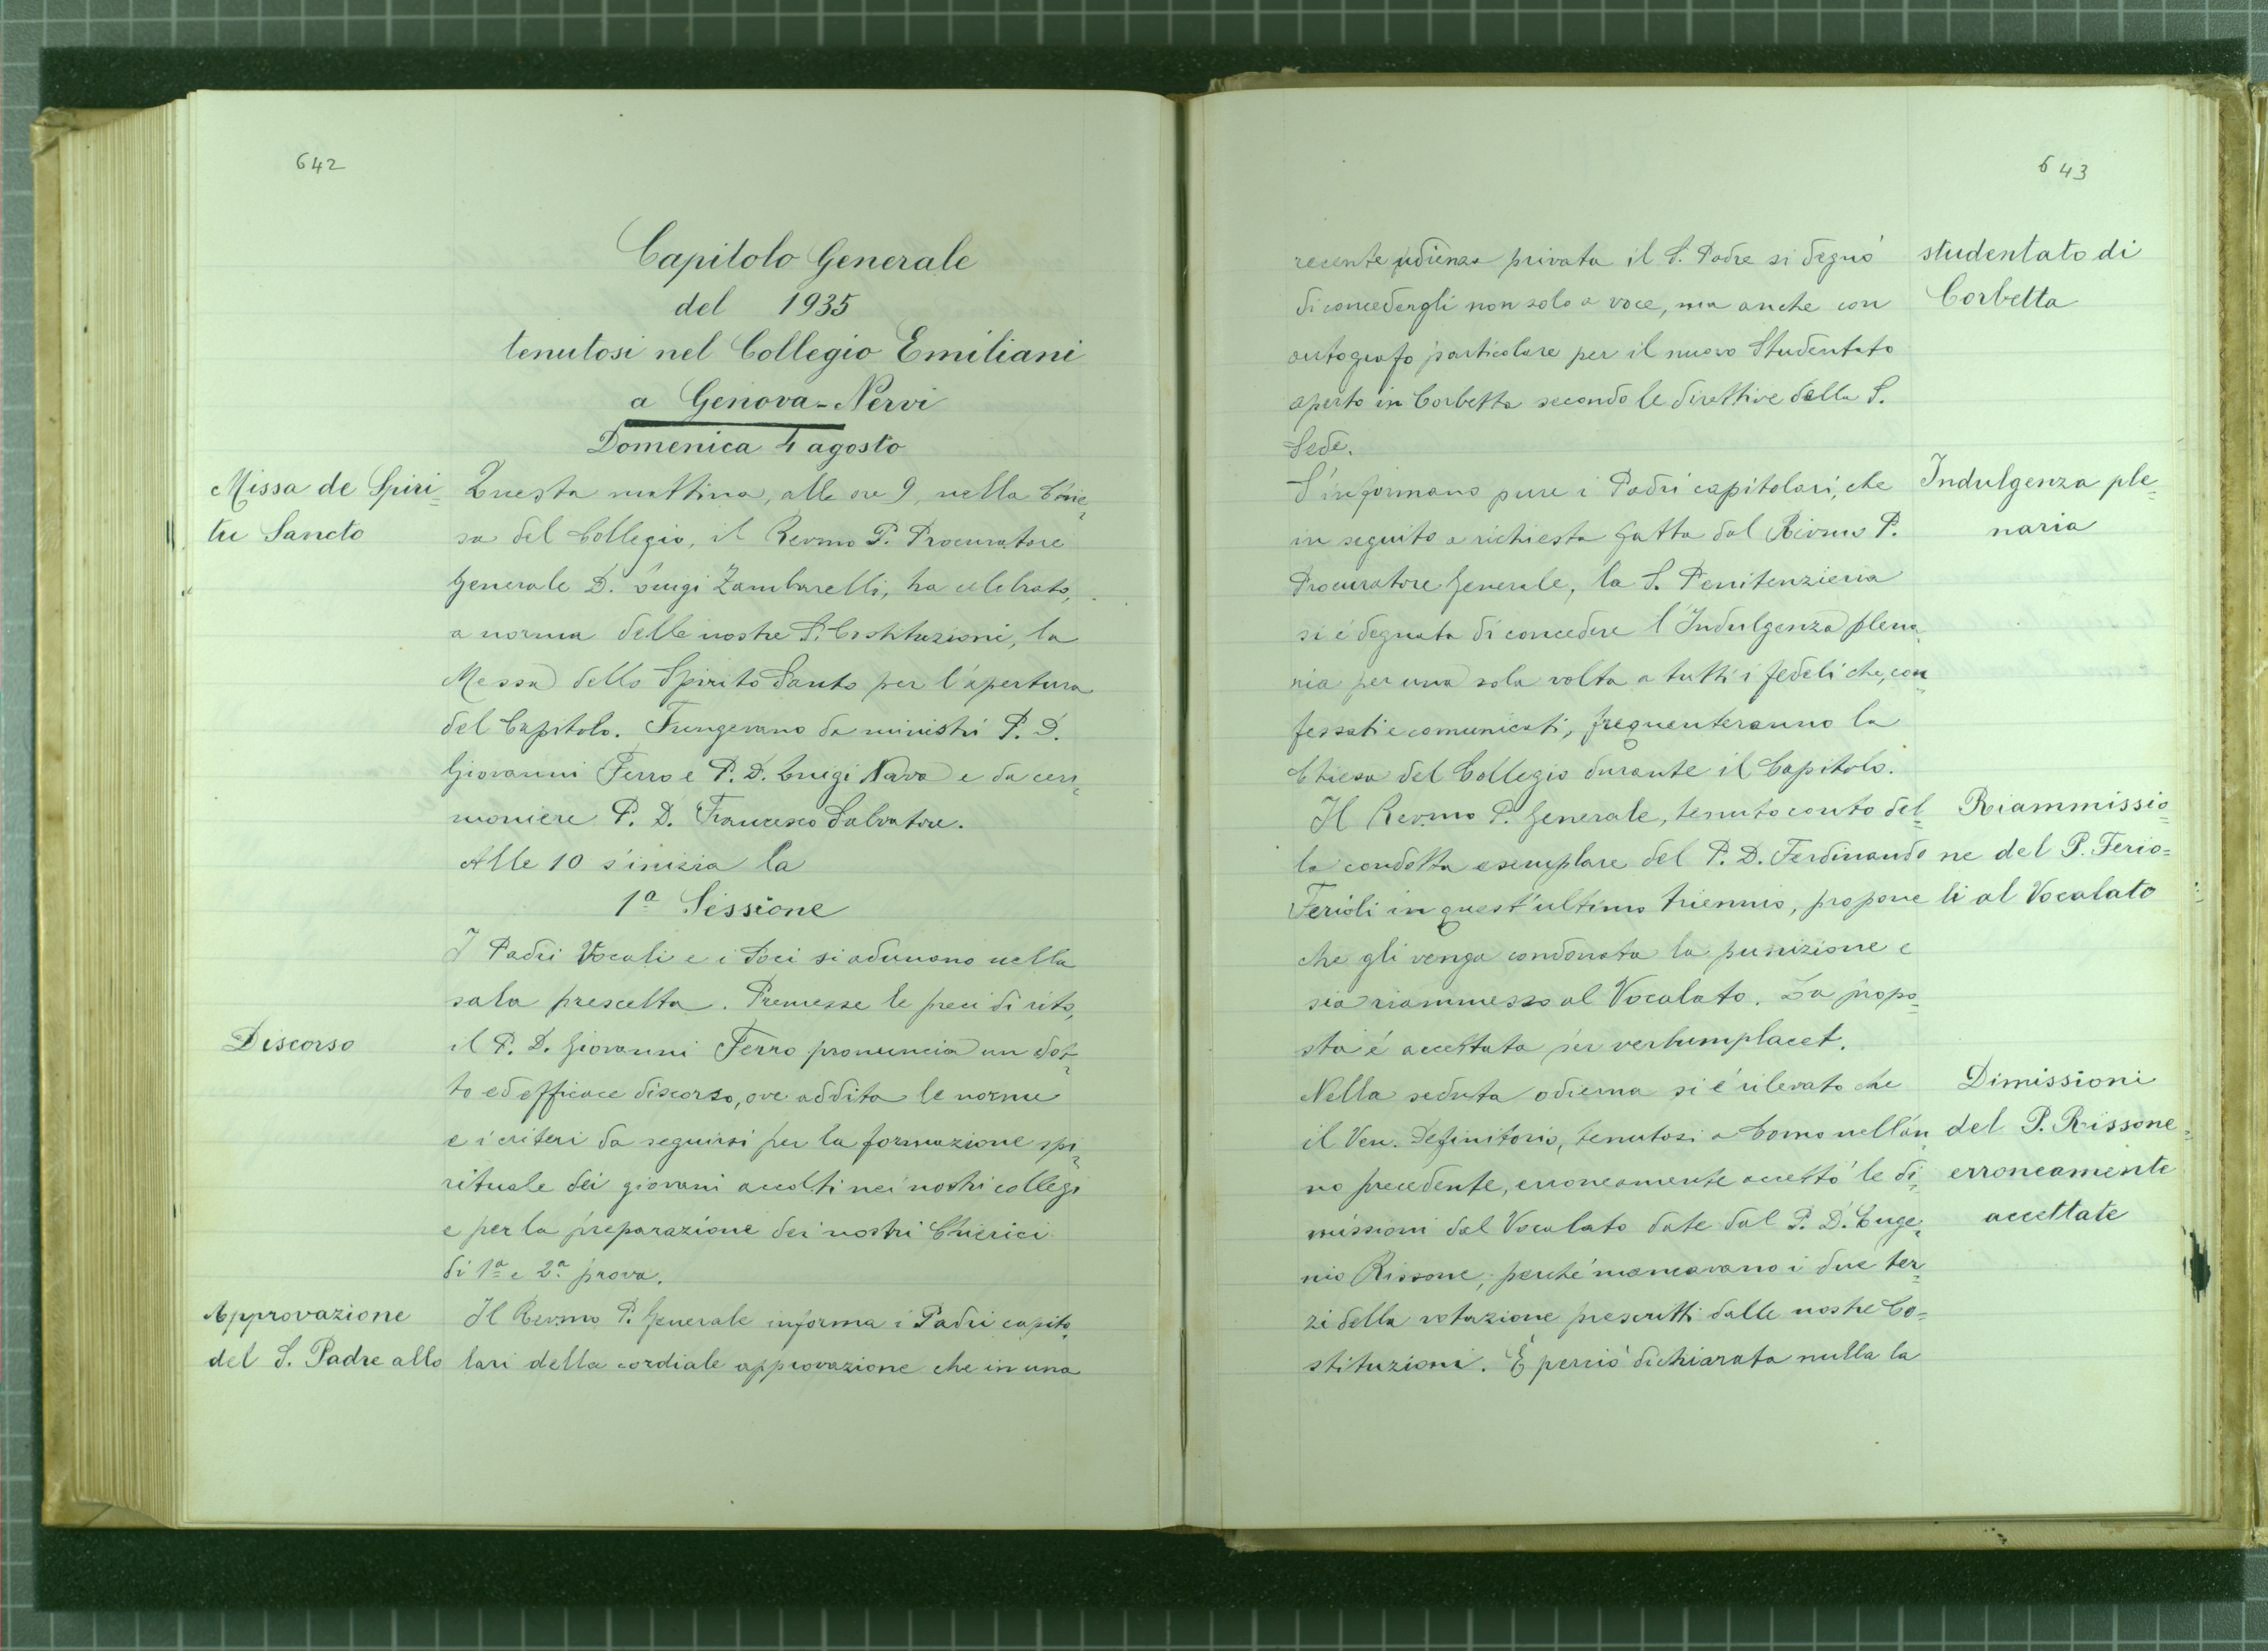 642
Capitolo Generale
del 1935
tenutosi nel Collegio Emiliani
a Genova-Nervi
Domenica 4 agosto
Missa de Spiri-
tu Sancto
Questa mattina, alle ore 9, nella Chie-
sa del Collegio, il Rev.mo P. Procuratore
Generale D. Luigi Zambarelli, ha celebrato,
a norma delle nostre S. Costituzioni, la
Messa dello Spirito Santo per l'apertura
del Capitolo. Fungevano da ministri P. D.
Giovanni Ferro e P. D. Luigi Nava e da ceri-
moniere P. D. Francesco Salvatore.
Alle 10 s'inizia la
1ª Sessione
I Padri Vocali e i Soci si adunano nella
sala prescelta. Premesse le preci di rito,
Discorso
il P. D. Giovanni Ferro pronuncia un dot-
to ed efficace discorso, ove addita le norme
e i criteri da seguirsi per la formazione spi-
rituale dei giovani accolti nei nostri collegi
e per la preparazione dei nostri Chierici
di 1ª e 2ª prova.
Approvazione
del S. Padre allo
Il Rev.mo P. Generale informa i Padri capito-
lari della cordiale approvazione che in una
643
recente udienza privata il S. Padre si degnò
di concedergli non solo a voce, ma anche con
autografo particolare per il nuovo Studentato
aperto in Corbetta secondo le direttive della S.
Sede.
studentato di
Corbetta
S'informano pure i Padri capitolari, che
in seguito a richiesta fatta dal Rev.mo P.
Procuratore Generale, la S. Penitenzieria
si è degnata di concedere l'Indulgenza plena-
ria per una sola volta a tutti i fedeli che, con-
fessati e comunicati, frequenteranno la
Chiesa del Collegio durante il Capitolo.
Indulgenza ple-
naria
Il Rev.mo P. Generale, tenuto conto del-
la condotta esemplare del P. D. Ferdinando
Ferioli in quest'ultimo triennio, propone
che gli venga condonata la punizione e
sia riammesso al Vocalato. La propo-
sta è accettata per verbumplacet.
Riammissio-
ne del P. Ferio=
li al Vocalato
Nella seduta odierna si è rilevato che
il Ven. Definitorio, tenutosi a Como nell'an-
no precedente, erroneamente accettò le di-
missioni dal Vocalato date dal P. D. Euge-
nio Rissone; perché mancavano i due ter-
zi della votazione prescritti dalle nostre Co=
stituzioni. È perciò dichiarata nulla la
Dimissioni
del P. Rissone
erroneamente
accettate